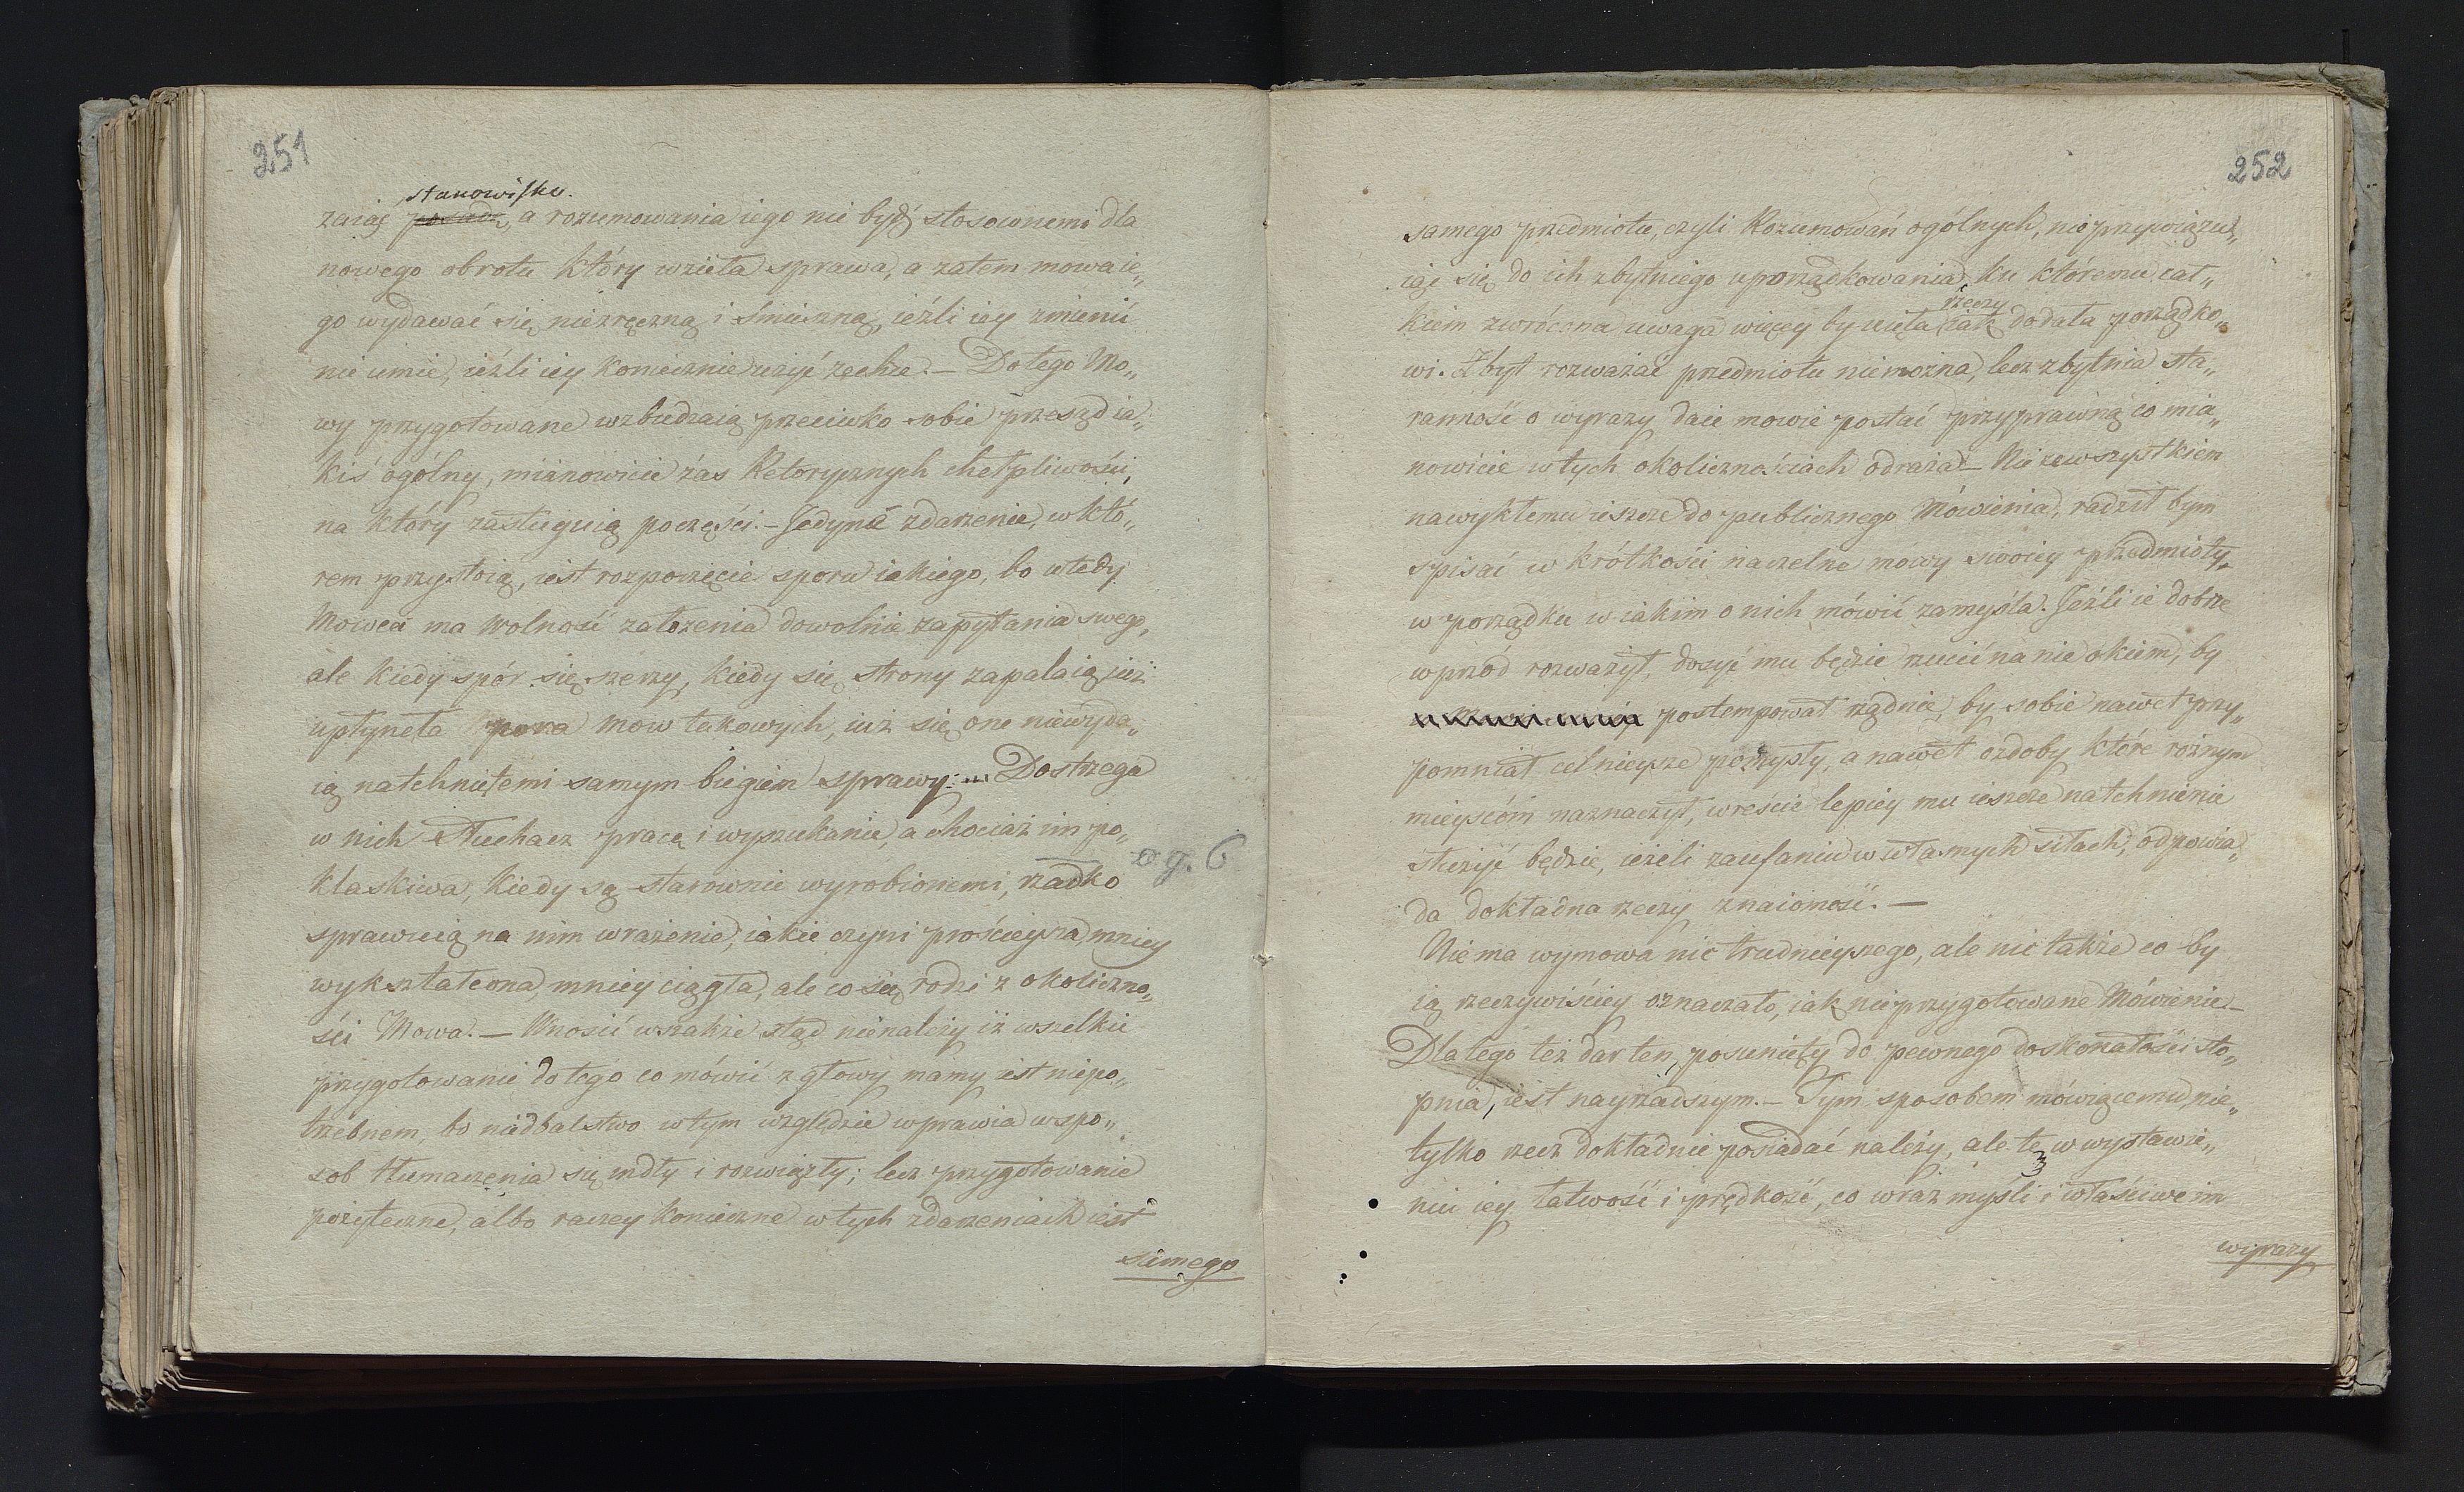 251
stanowisku.
zaiąć posadę, a rozumowania iego nie bydź stosownemi dla
nowego obrotu który wzieła sprawa, a zatem mowa ie„
go wydawać się niezręczną i śmieszną, ieźli iey zmienić
nie umie, ieźli iey koniecznie użyć zechce. — Do tego Mo„
wy przygotowane wzbudzaią przeciwko sobie przesąd ia„
kiś ogólny, mianowicie zas Retorycznych chełpliwości,
na który zasługuią poczęści. — Jedyna zdarzenie, w któ„
rem przystoią, iest rozpoczęcie sporu iakiego, bo wtedy
Mowca ma wolność założenia dowolnie zapytania swego,
ale kiedy spór się szerzy, kiedy się strony zapalaią iuż
upłyneła pora mow takowych, iuż się one niewyda„
ią natchniętemi samym biegiem sprawy. — Dostrzega
w nich słuchacz pracę i wyszukanie, a chociaż im po„
klaskiwa, kiedy są starownie wyrobionemi, rzadko
og. 6
sprawuią na nim wrażenie, iakie czyni prościeysza, mniey
wykształcona, mniey ciągła, ale co się rodzi z okoliczno„
ści Mowa. — Wnosić wszakże ztąd nienależy iż wszelkie
przygotowanie do tego co mówić z głowy mamy iest niepo„
trzebnem, bo niedbalstwo w tym względzie wprawia w spo„
sob tłumaczenia się mdły i rozwiązły; lecz przygotowanie
pożyteczne, albo raczey konieczne w tych zdarzeniach iest
samego
252
samego przedmiotu, czyli Rozumowań ogólnych, nie przywiązu„
iąc się do ich zbytniego uporządkowania, ku któremu cał„
rzeczy
kiem zwrócona uwaga więcey by uięła iak dodała porządko„
wi. Zbyt rozważać przedmiotu niemożna, lecz zbytnia sta„
ranność o wyrazy daie mowie postać przyprawną co mia„
nowicie w tych okolicznościach odraża. — Nie zewszystkiem
nawykłemu ieszcze do publicznego Mówienia, radził bym
spisać w krótkości naczelne mowy swoiey przedmioty,
w porządku w iakim o nich mówić zamyśla. Jeźli ie dobrze
wprzód rozważył, dosyć mu będzie rzucić na nie okiem, by
postempował rządnie, by sobie nawet przy„
pomniał celnieysze pomysły, a nawet ozdoby które rożnym
mieyscóm naznaczył, wreście lepiey mu ieszcze natchnienie
służyć będzie, ieżeli zaufaniu w własnych siłach, odpowia„
da dokładna rzeczy znaiomość. —
Nie ma wymowa nic trudnieyszego, ale nic także co by
ią rzeczywiściey oznaczało, iak nieprzygotowane Mówienie. —
Dla tego też dar ten, posunięty do pewnego doskonałości sto„
pnia, iest nayrzadszym. — Tym sposobem mówiącemu, nie„
tylko rzecz dokładnie posiadać należy, ale tę w wystawie„
niu iey łatwość i prędkość, co wraz myśli i właściwe im
wyrazy